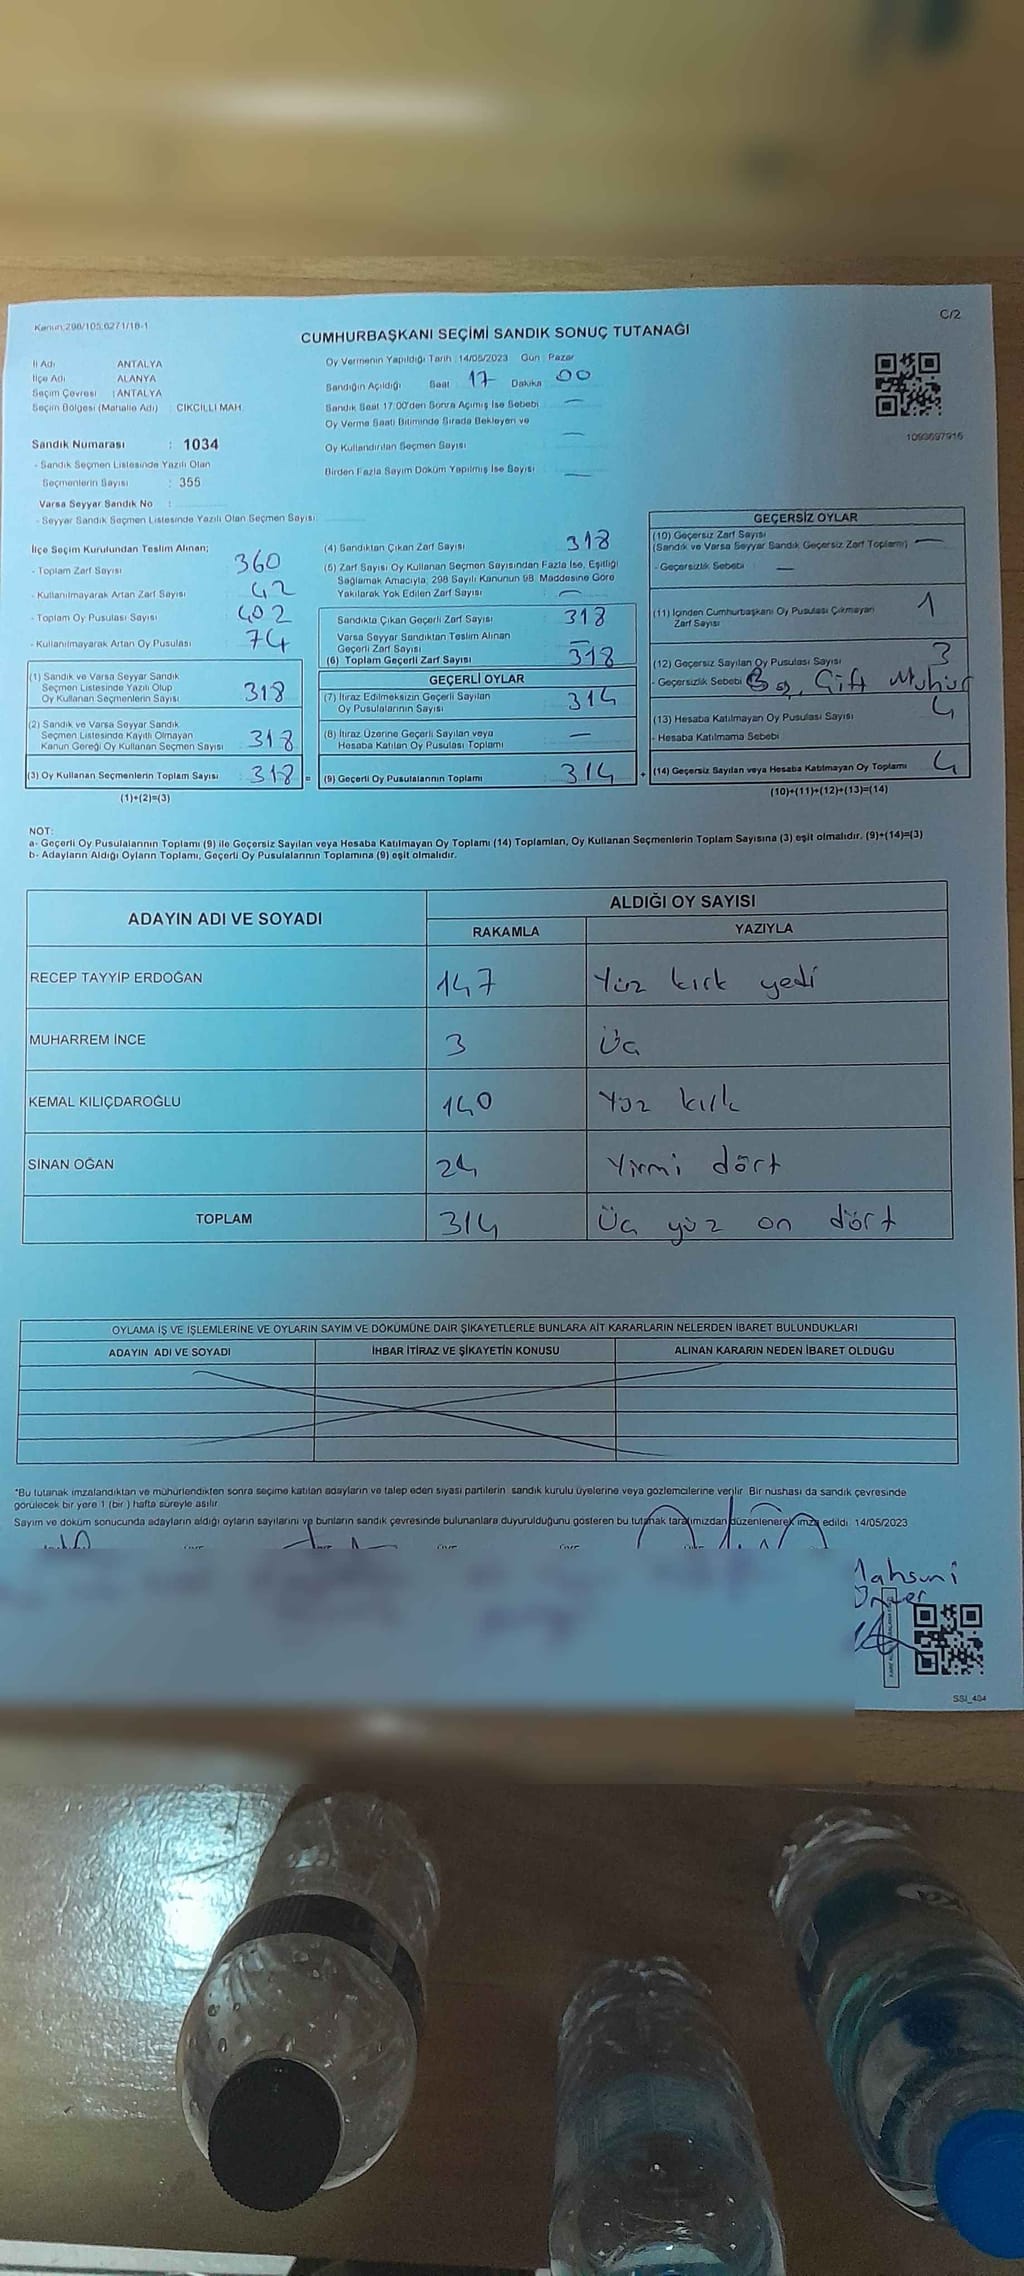 Kanun:298/105,6271/18-1
C/2
CUMHURBAŞKANI SEÇİMİ SANDIK SONUÇ TUTANAĞI
İl Adı ANTALYA
İlçe Adı ALANYA
Seçim Çevresi : ANTALYA
Seçim Bölgesi (Mahalle Adı) : CİKCİLLİ MAH.
Sandık Numarası : 1034
- Sandık Seçmen Listesinde Yazılı Olan
Seçmenlerin Sayısı : 355
Varsa Seyyar Sandık No :
- Seyyar Sandık Seçmen Listesinde Yazılı Olan Seçmen Sayısı:
Oy Vermenin Yapıldığı Tarih : 14/05/2023 Gün : Pazar
Sandığın Açıldığı Saat 17 Dakika 00
Sandık Saat 17:00'den Sonra Açılmış İse Sebebi : —
Oy Verme Saati Bitiminde Sırada Bekleyen ve
Oy Kullandırılan Seçmen Sayısı —
Birden Fazla Sayım Döküm Yapılmış İse Sayısı : —
1093697916
İlçe Seçim Kurulundan Teslim Alınan;
- Toplam Zarf Sayısı : 360
- Kullanılmayarak Artan Zarf Sayısı : 42
- Toplam Oy Pusulası Sayısı : 402
- Kullanılmayarak Artan Oy Pusulası : 74
(1) Sandık ve Varsa Seyyar Sandık
Seçmen Listesinde Yazılı Olup
Oy Kullanan Seçmenlerin Sayısı : 318
(2) Sandık ve Varsa Seyyar Sandık
Seçmen Listesinde Kayıtlı Olmayan
Kanun Gereği Oy Kullanan Seçmen Sayısı : 318
(3) Oy Kullanan Seçmenlerin Toplam Sayısı : 318 =
(1)+(2)=(3)
(4) Sandıktan Çıkan Zarf Sayısı : 318
(5) Zarf Sayısı Oy Kullanan Seçmen Sayısından Fazla İse, Eşitliği
Sağlamak Amacıyla, 298 Sayılı Kanunun 98. Maddesine Göre
Yakılarak Yok Edilen Zarf Sayısı : —
Sandıkta Çıkan Geçerli Zarf Sayısı : 318
Varsa Seyyar Sandıktan Teslim Alınan
Geçerli Zarf Sayısı : —
(6) Toplam Geçerli Zarf Sayısı : 318
GEÇERLİ OYLAR
(7) İtiraz Edilmeksizin Geçerli Sayılan
Oy Pusulalarının Sayısı : 314
(8) İtiraz Üzerine Geçerli Sayılan veya
Hesaba Katılan Oy Pusulası Toplamı : —
(9) Geçerli Oy Pusulalarının Toplamı : 314 +
GEÇERSİZ OYLAR
(10) Geçersiz Zarf Sayısı
(Sandık ve Varsa Seyyar Sandık Geçersiz Zarf Toplamı) : —
- Geçersizlik Sebebi : —
(11) İçinden Cumhurbaşkanı Oy Pusulası Çıkmayan
Zarf Sayısı : 1
(12) Geçersiz Sayılan Oy Pusulası Sayısı : 3
- Geçersizlik Sebebi : Çift Mühür
(13) Hesaba Katılmayan Oy Pusulası Sayısı : 4
- Hesaba Katılmama Sebebi :
(14) Geçersiz Sayılan veya Hesaba Katılmayan Oy Toplamı : 4
(10)+(11)+(12)+(13)=(14)
NOT:
a- Geçerli Oy Pusulalarının Toplamı (9) ile Geçersiz Sayılan veya Hesaba Katılmayan Oy Toplamı (14) Toplamları, Oy Kullanan Seçmenlerin Toplam Sayısına (3) eşit olmalıdır. (9)+(14)=(3)
b- Adayların Aldığı Oyların Toplamı, Geçerli Oy Pusulalarının Toplamına (9) eşit olmalıdır.
ADAYIN ADI VE SOYADI ALDIĞI OY SAYISI
RAKAMLA YAZIYLA
RECEP TAYYİP ERDOĞAN 147 Yüz kırk yedi
MUHARREM İNCE 3 Üç
KEMAL KILIÇDAROĞLU 140 Yüz kırk
SİNAN OĞAN 24 Yirmi dört
TOPLAM 314 Üç yüz on dört
OYLAMA İŞ VE İŞLEMLERİNE VE OYLARIN SAYIM VE DÖKÜMÜNE DAİR ŞİKAYETLERLE BUNLARA AİT KARARLARIN NELERDEN İBARET BULUNDUKLARI
ADAYIN ADI VE SOYADI İHBAR İTİRAZ VE ŞİKAYETİN KONUSU ALINAN KARARIN NEDEN İBARET OLDUĞU
*Bu tutanak imzalandıktan ve mühürlendikten sonra seçime katılan adayların ve talep eden siyasi partilerin sandık kurulu üyelerine veya gözlemcilerine verilir. Bir nüshası da sandık çevresinde
görülecek bir yere 1 (bir ) hafta süreyle asılır.
Sayım ve döküm sonucunda adayların aldığı oyların sayılarını ve bunların sandık çevresinde bulunanlara duyurulduğunu gösteren bu tutanak tarafımızdan düzenlenerek imza edildi. 14/05/2023
Mahsuni
SSI_404